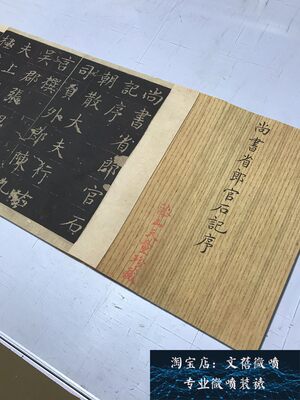 尚書省郎官石記序
尚書省郎官石
記序
朝散大夫行
司員外郎陳九
言撰
吳郡張
夫上
極
淘宝店：文蓓微喷
专业微喷装裱